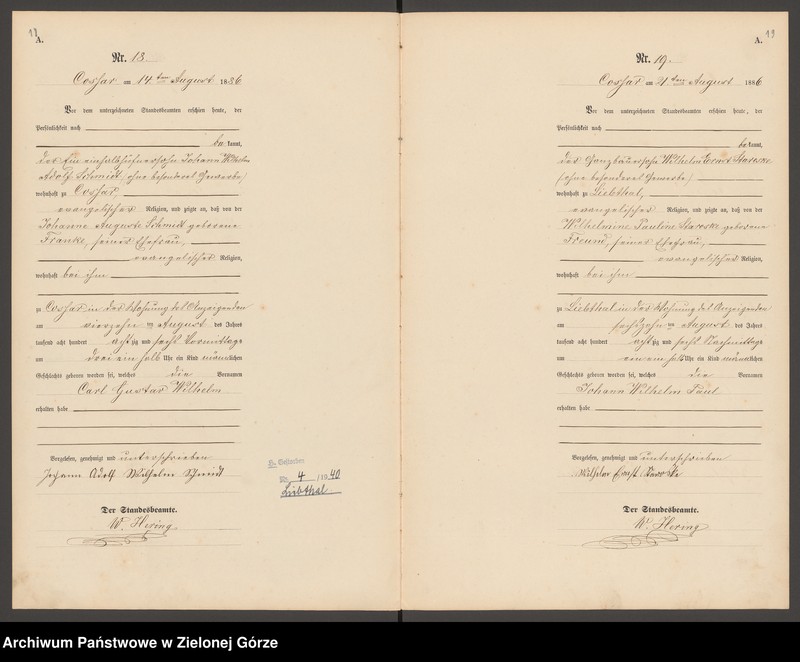 18
A.
Nr. 18.
Cossar am 14ten August 1886
Vor dem unterzeichneten Standesbeamten erschien heute, der
Persönlichkeit nach
be kannt,
der Johann Wilhelm
Adolf Schmidt, (ohne besonderes Gewerbe)
wohnhaft zu Cossar
evangelischer Religion, und zeigte an, daß von der
Johanne Auguste Schmidt geborene
Franke, seiner Ehefrau,
evangelischer Religion,
wohnhaft bei ihm
zu Cossar in der Wohnung des Anzeigenden
am vierzehn ten August des Jahres
tausend acht hundert acht zig und sechs Vormittags
um drei ein halb Uhr ein Kind männlichen
Geschlechts geboren worden sei, welches die Vornamen
Carl Gustav Wilhelm
erhalten habe
Vorgelesen, genehmigt und unterschrieben
Johann Adolf Wilhelm Schmidt
Der Standesbeamte.
W. Hering
Nr. 4 /1940
Liebthal
19
A.
Nr. 19.
Cossar am 21ten August 1886
Vor dem unterzeichneten Standesbeamten erschien heute, der
Persönlichkeit nach
be kannt,
der Ganzbauersohn Wilhelm Ernst
(ohne besonderes Gewerbe)
wohnhaft zu Liebthal,
evangelischer Religion, und zeigte an, daß von der
Wilhelmine Pauline geborene
Freund, seiner Ehefrau,
evangelischer Religion,
wohnhaft bei ihm
zu Liebthal in der Wohnung des Anzeigenden
am sechszehn ten August des Jahres
tausend acht hundert acht zig und sechs Nachmittags
um ein ein halb Uhr ein Kind männlichen
Geschlechts geboren worden sei, welches die Vornamen
Johann Wilhelm Paul
erhalten habe
Vorgelesen, genehmigt und unterschrieben
Wilhelm Ernst
Der Standesbeamte.
W. Hering
Archiwum Państwowe w Zielonej Górze